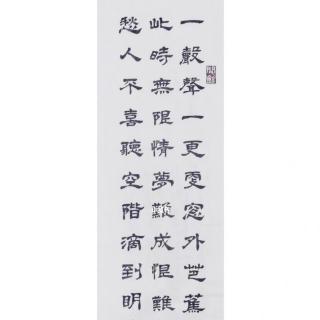 一聲聲一更更窓外芭蕉
此時無限情夢難成恨難
愁人不喜聽空階滴到明